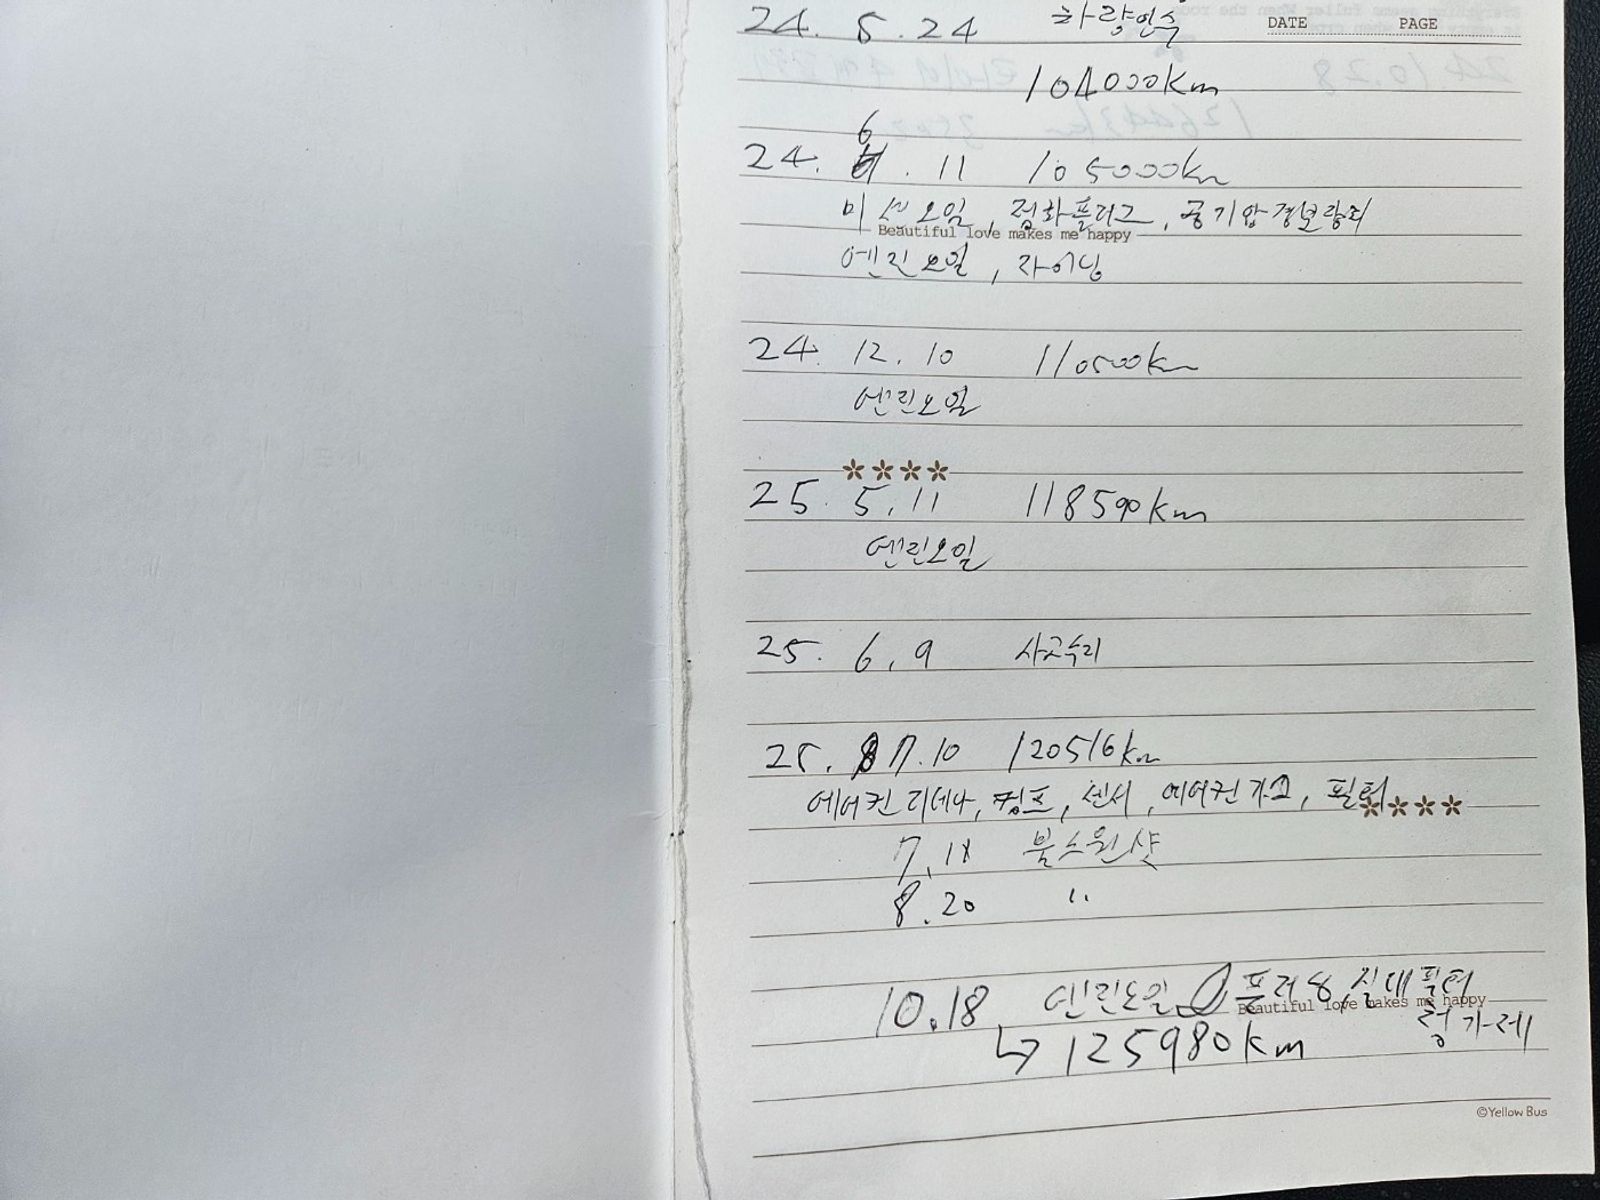 24. 5. 24 차량인수
DATE PAGE
104000km
24. 6. 11 105000km
미션오일, 점화플러그, 공기압경보장치
Beautiful love makes me happy
엔진오일, 라이닝
24. 12. 10 110500km
엔진오일
25. 5. 11 118590km
엔진오일
25. 6. 9 사고수리
25. 7. 10 120516km
에어컨 리데나, 펌프, 센서, 에어컨가스, 필터
7. 18 불스원샷
8. 20 〃
10.18, 엔진오일 플러싱, 실내필터
Beautiful love makes me happy
↳ 125980km
©Yellow Bus